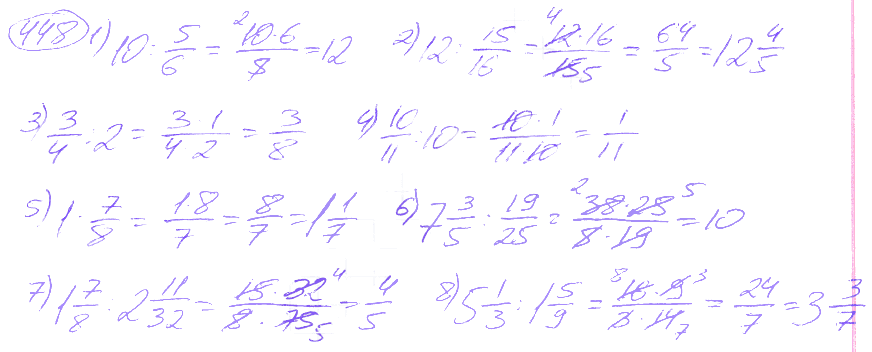 448 1) 10 : 5/6 = 10·6/5 = 12 2) 12 : 15/16 = 12·16/15 = 64/5 = 12 4/5
3) 3/4 : 2 = 3·1/4·2 = 3/8 4) 10/11 : 10 = 10·1/11·10 = 1/11
5) 1 : 7/8 = 1·8/7 = 8/7 = 1 1/7 6) 7 3/5 : 19/25 = 38·25/5·19 = 10
7) 1 7/8 : 2 11/32 = 15·32/8·75 = 4/5 8) 5 1/3 : 1 5/9 = 16·9/3·14 = 24/7 = 3 3/7